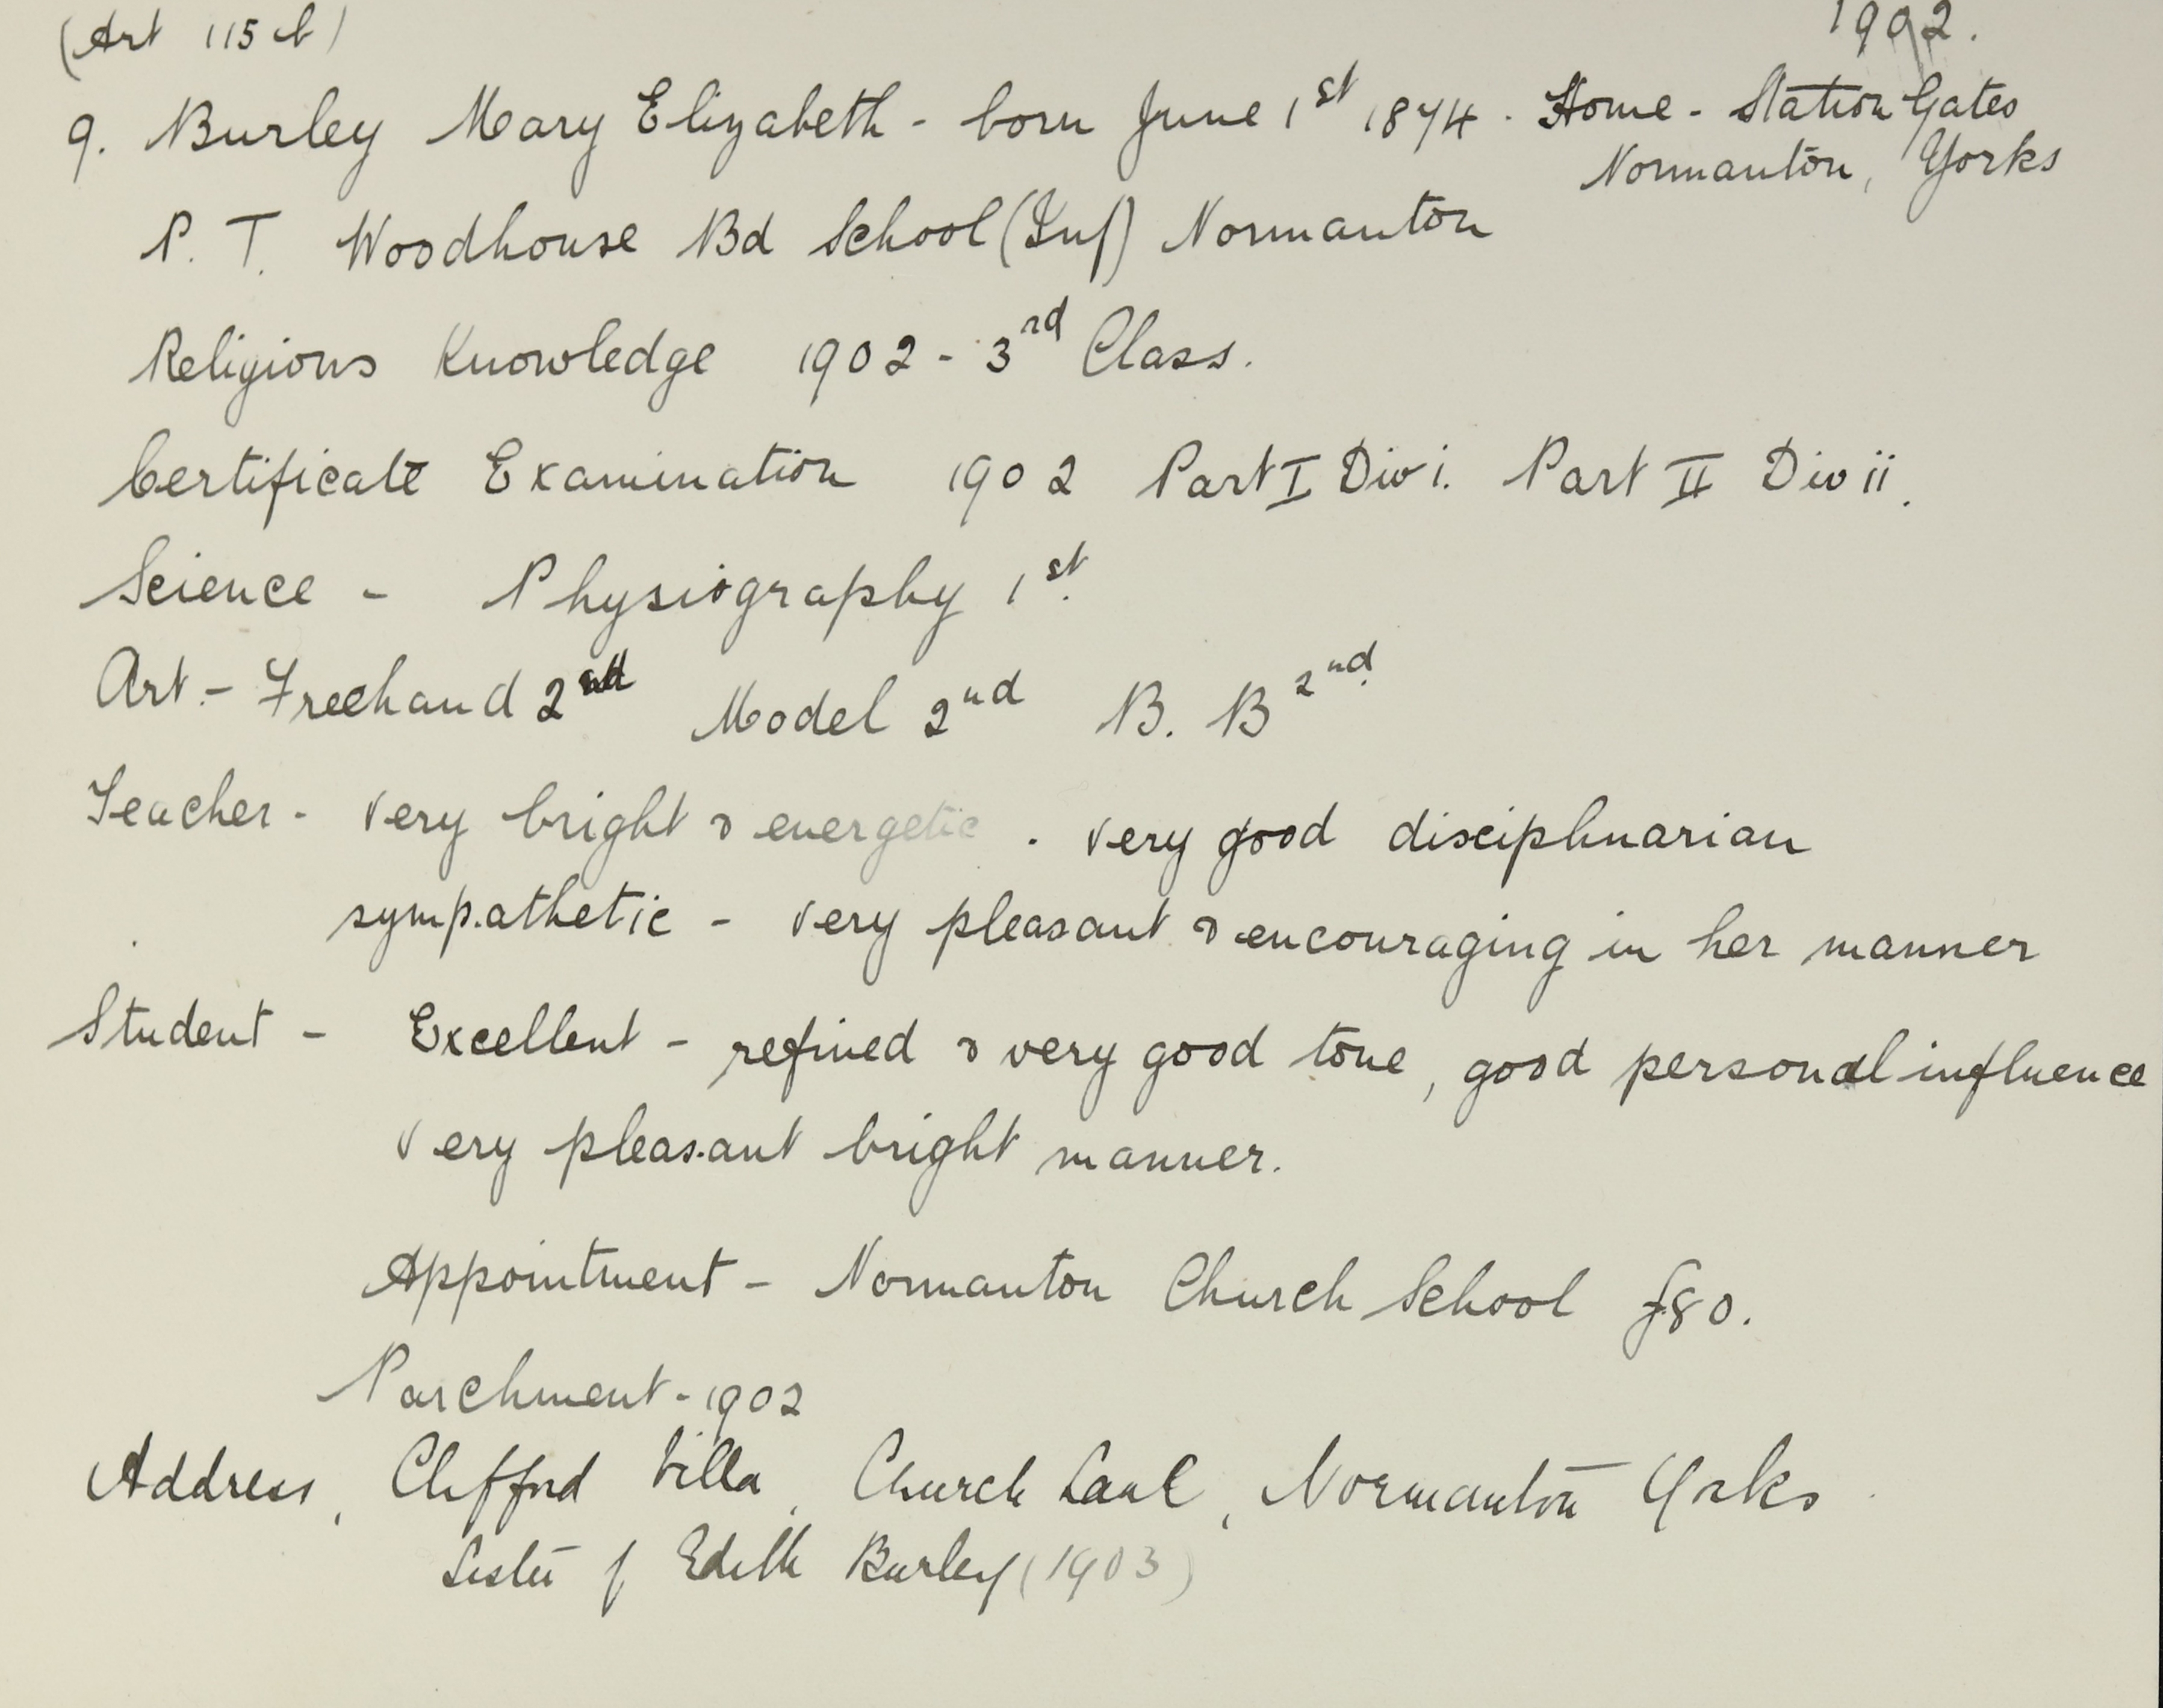 (Art 115 b) 1902.
9. Burley Mary Elizabeth - born June 1st 1874. Home - Station Gates
Normanton, Yorks
P. T. Woodhouse Bd School (Inf) Normanton
Religious Knowledge 1902 - 3rd Class.
Certificate Examination 1902 Part I Div i. Part II Div ii.
Science - Physiography 1st.
Art - Freehand 2nd Model 2nd B. B 2nd.
Teacher - Very bright & energetic. very good disciplinarian
sympathetic - very pleasant & encouraging in her manner
Student - Excellent - refined & very good tone, good personal influence
very pleasant bright manner.
Appointment - Normanton Church School £80.
Parchment - 1902
Address, Clifford Villa, Church Lane, Normanton Yorks
Sister of Edith Burley (1903)